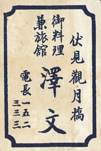 伏見觀月橋
御料理
兼旅館
澤文
電長一五二
三三三